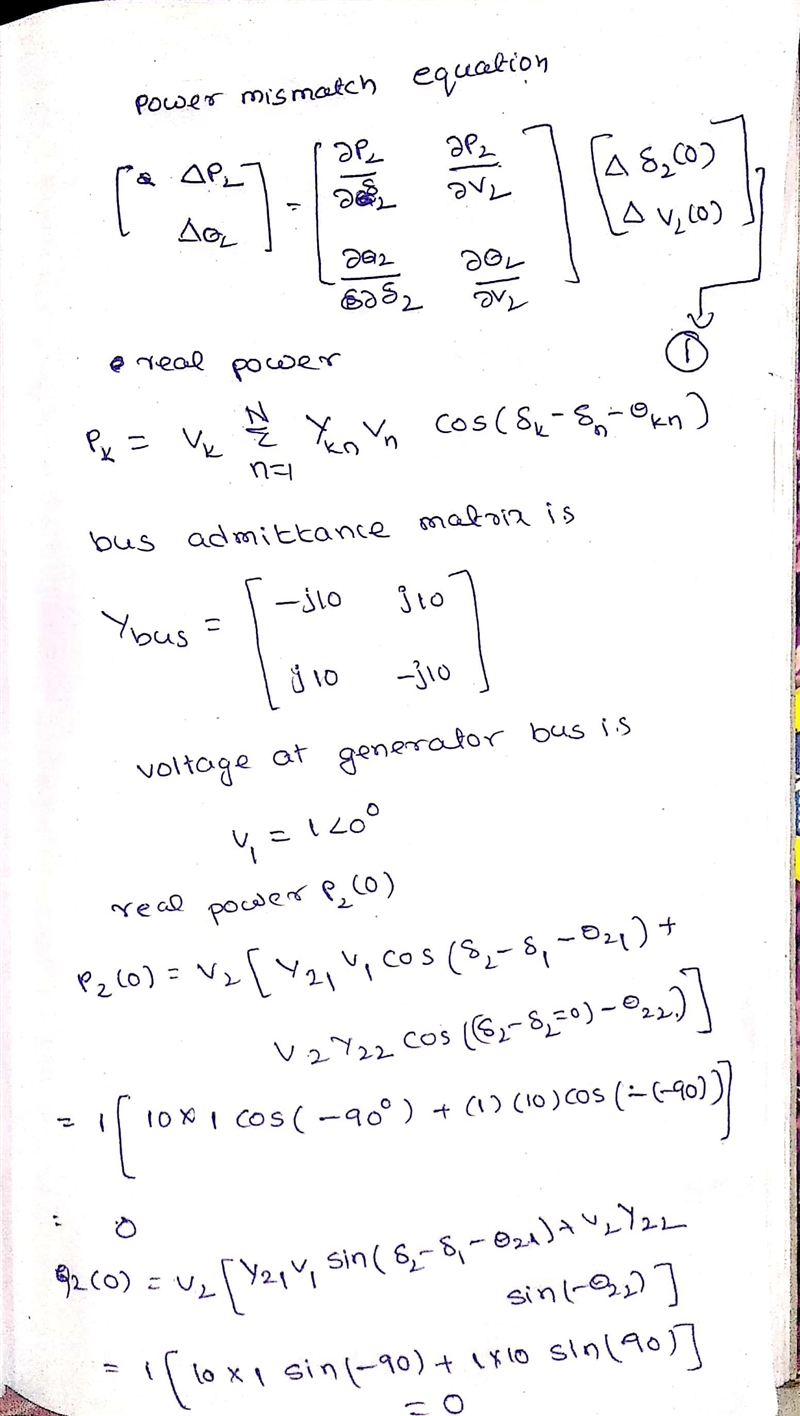 power mismatch equation
[ΔP₂ ΔQ₂] = [∂P₂/∂δ₂ ∂P₂/∂V₂ ; ∂Q₂/∂δ₂ ∂Q₂/∂V₂] [Δδ₂(0) ΔV₂(0)] → ①
real power
P_k = V_k N Σ n=1 Y_kn V_n cos(δ_k - δ_n - θ_kn)
bus admittance matrix is
Ybus = [-j10 j10 ; j10 -j10]
voltage at generator bus is
V₁ = 1∠0°
real power P₂(0)
P₂(0) = V₂[Y₂₁V₁ cos(δ₂-δ₁-θ₂₁) +
V₂Y₂₂ cos((δ₂-δ₂=0)-θ₂₂)]
= 1[10×1 cos(-90°) + (1)(10)cos(-(-90))]
= 0
Q₂(0) = V₂[Y₂₁V₁ sin(δ₂-δ₁-θ₂₁)+V₂Y₂₂
sin(-θ₂₂)]
= 1[10×1 sin(-90)+1×10 sin(90)]
= 0